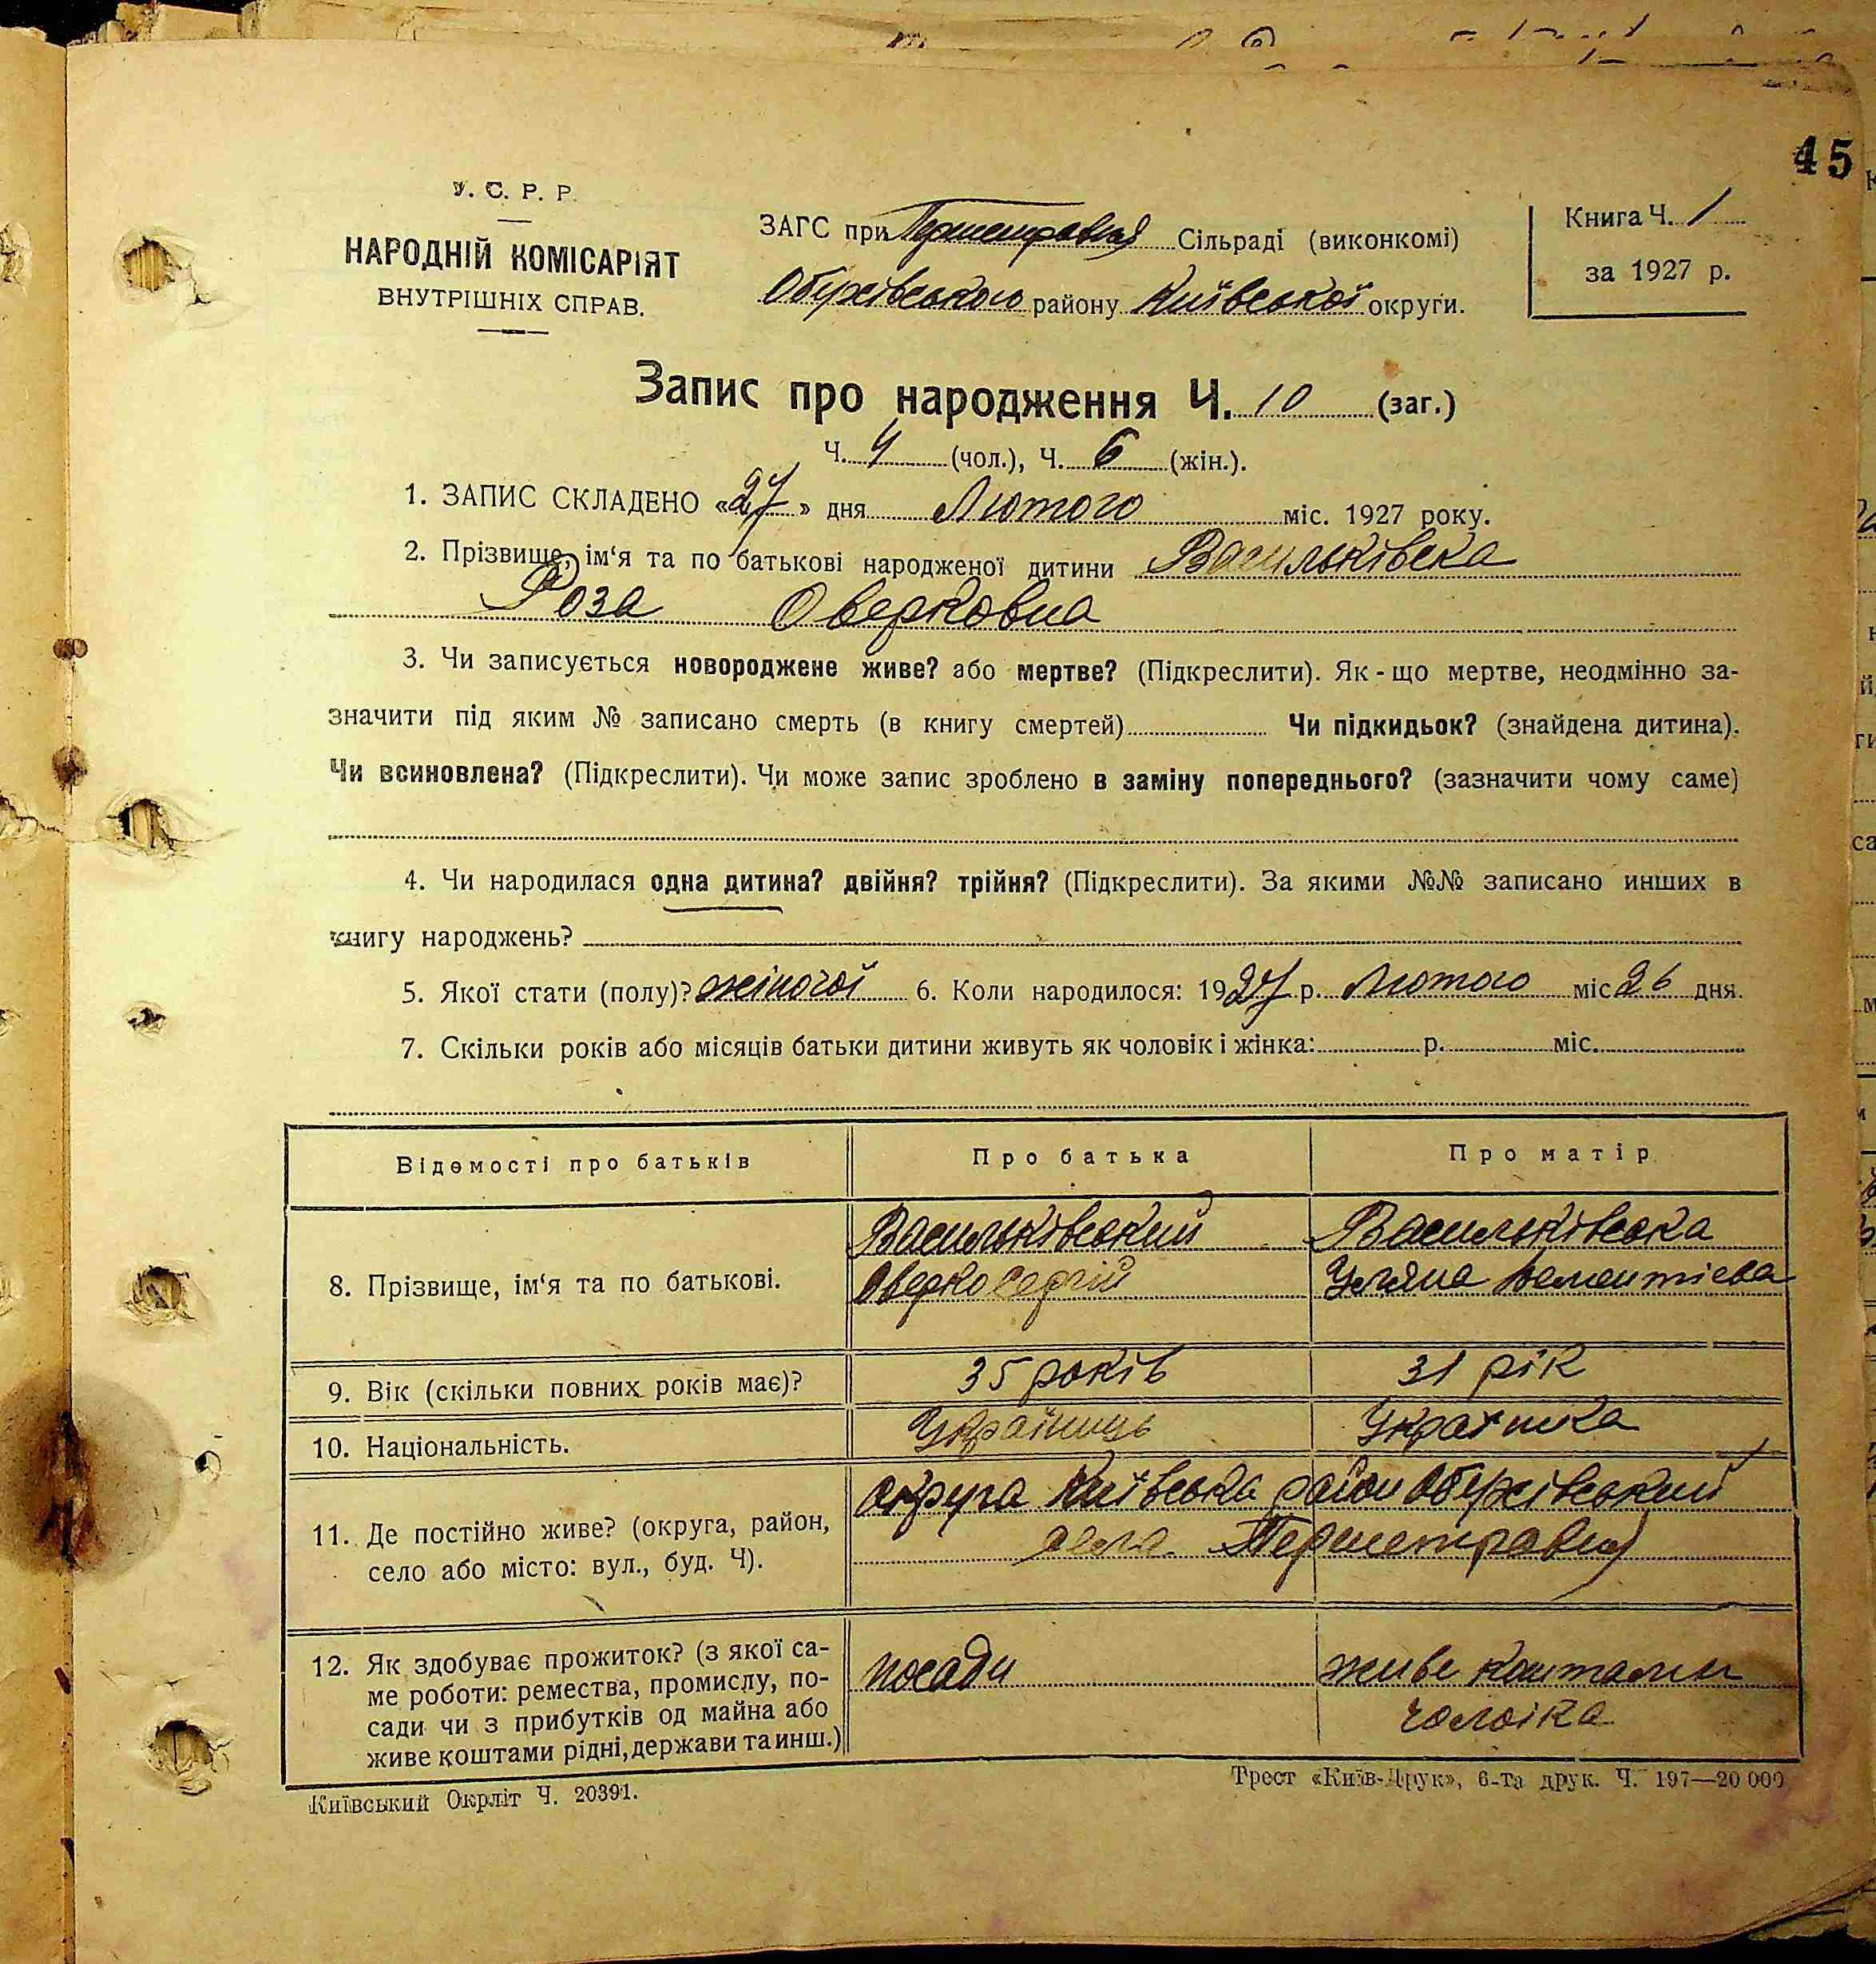 45
У. С. Р. Р.
НАРОДНІЙ КОМІСАРІЯТ
ВНУТРІШНІХ СПРАВ.
ЗАГС при Першетравня Сільраді (виконкомі)
Обухівського району Київської округи.
Книга Ч. 1
за 1927 р.
Запис про народження Ч. 10 (заг.)
Ч. 4 (чол.), Ч. 6 (жін.).
1. ЗАПИС СКЛАДЕНО «27» дня Лютого міс. 1927 року.
2. Прізвище, ім‘я та по батькові народженої дитини Васильківска
Роза Оверковна
3. Чи записується новороджене живе? або мертве? (Підкреслити). Як-що мертве, неодмінно за-
значити під яким № записано смерть (в книгу смертей) Чи підкидьок? (знайдена дитина).
Чи всиновлена? (Підкреслити). Чи може запис зроблено в заміну попереднього? (зазначити чому саме)
4. Чи народилася одна дитина? двійня? трійня? (Підкреслити). За якими №№ записано инших в
книгу народжень?
5. Якої стати (полу)? жіночої 6. Коли народилося: 1927 р. Лютого міс 26 дня.
7. Скільки років або місяців батьки дитини живуть як чоловік і жінка: р. міс.
Відомості про батьків Про батька Про матір
8. Прізвище, ім‘я та по батькові.
Васильківський Васильківська
Оверко Сергій Уляна
9. Вік (скільки повних років має)? 35 років 31 рік
10. Національність. Українець Українка
11. Де постійно живе? (округа, район,
село або місто: вул., буд. Ч).
округа Київська район Обухівський
село Першетравня
12. Як здобуває прожиток? (з якої са-
ме роботи: ремества, промислу, по-
сади чи з прибутків од майна або
живе коштами рідні, держави та инш.)
посади живе коштами
чоловіка
Київський Окрліт Ч. 20391.
Трест «Київ-Друк», 6-та друк. Ч. 197—20 000